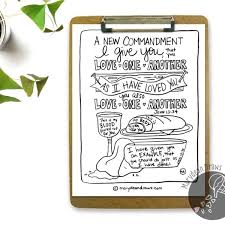 A NEW COMMANDMENT
I give you that you
LOVE·ONE·ANOTHER
AS I HAVE LOVED YOU
you also
LOVE·ONE·ANOTHER
JOHN 13:34
This is my
BLOOD
I have given you
an EXAMPLE, that
you should do just as
I have done